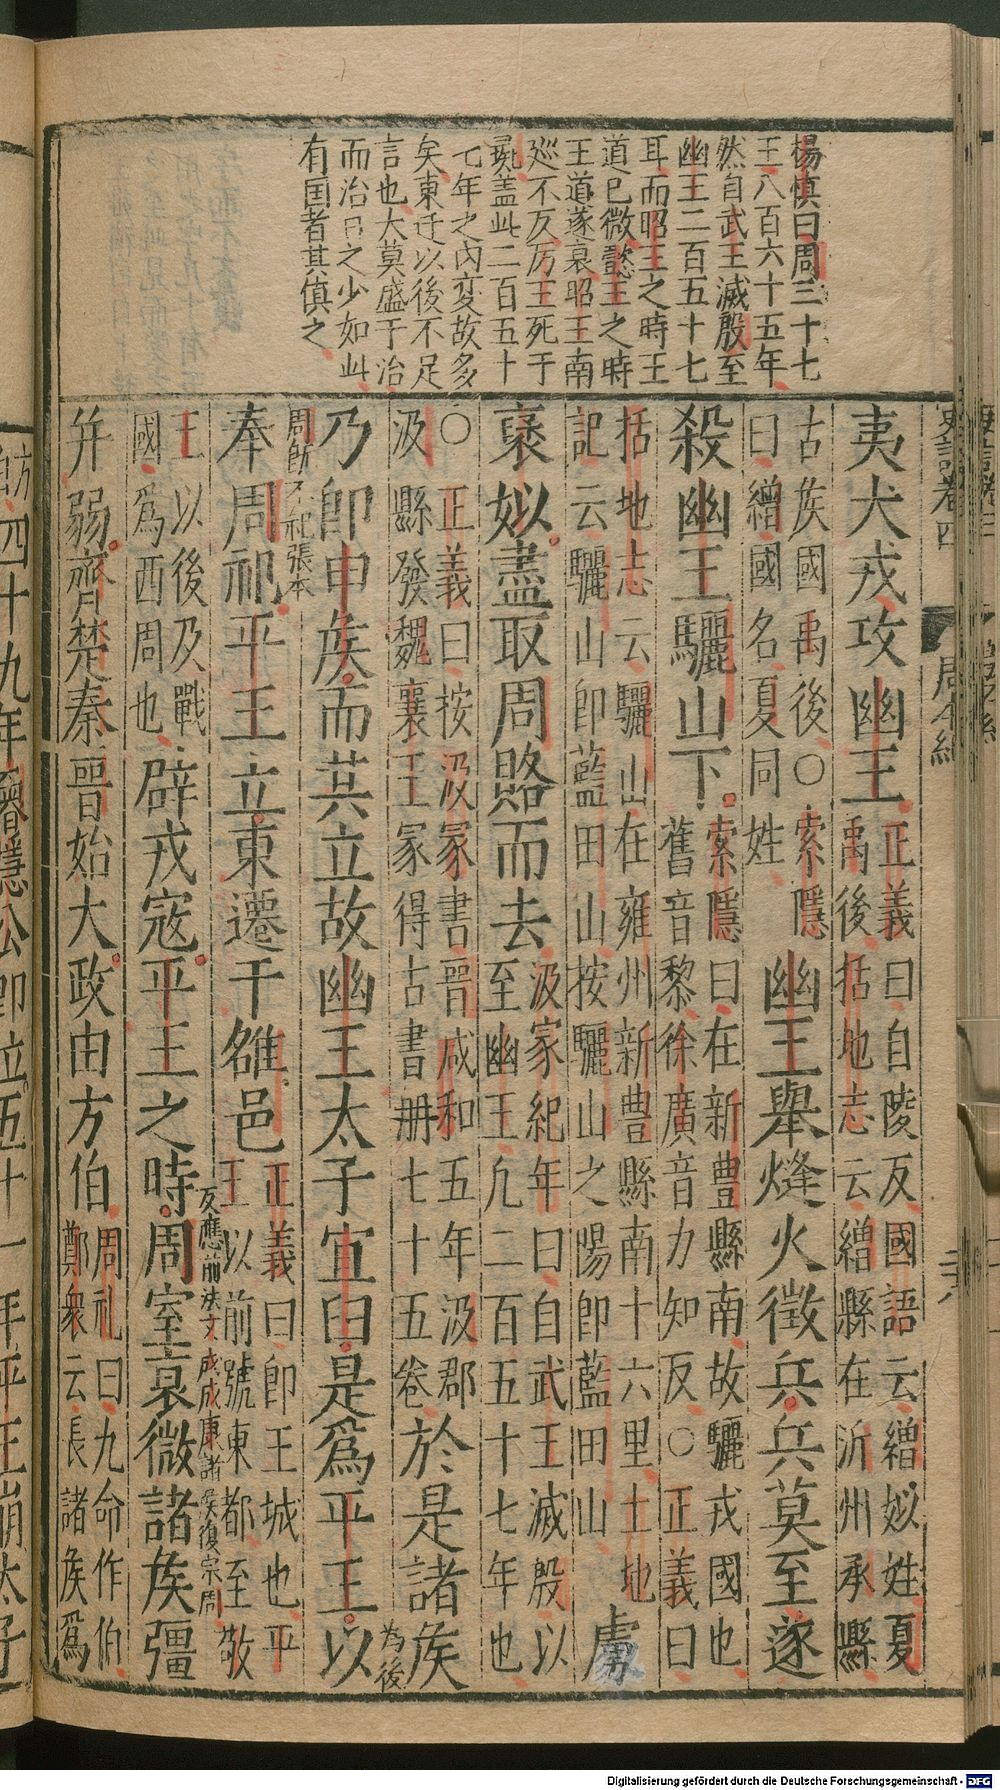 楊慎曰周三十七
王八百六十五年
然自武王滅殷至
幽王二百五十七
耳而昭王之時王
道已微懿王之時
王道遂衰昭王南
巡不反厉王死于
彘盖此二百五十
七年之内変故多
矣東迁以後不足
言也大莫盛于治
而治日之少如此
有国者其慎之
夷犬戎攻幽王
正義曰自陵反國語云繒姒姓夏
禹後括地志云繒縣在沂州承縣
古族國禹後○索隱
曰繒國名夏同姓
幽王舉烽火徵兵兵莫至遂
殺幽王驪山下
索隱曰在新豊縣南故驪戎國也
舊音黎徐廣音力知反○正義曰
括地志云驪山在雍州新豊縣南十六里土地
記云驪山即藍田山按驪山之陽即藍田山
虜
襃姒盡取周賂而去
汲冢紀年曰自武王滅殷以
至幽王凢二百五十七年也
○正義曰按汲冢書晉咸和五年汲郡
汲縣發魏襄王冢得古書册七十五卷
於是諸矦
為後
乃即申矦而共立故幽王太子宜臼是爲平王以
周師不祀張本
奉周祀平王立東遷于雒邑
正義曰即王城也平
王以前號東都至敬
王以後及戰
國爲西周也
辟戎寇平王之時周室衰微諸矦彊
反應前後文成康諸矦復宗周
并弱齊楚秦晉始大政由方伯
周礼曰九命作伯
鄭衆云長諸矦爲
史記卷四
周本紀
方伯
四十九年魯隱公即位五十一年平王崩太子
Digitalisierung gefördert durch die Deutsche Forschungsgemeinschaft - DFG